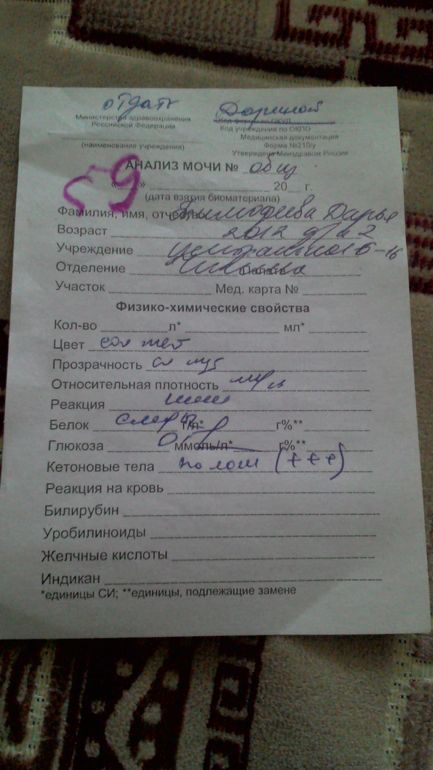 отдать Дориной
Министерство здравоохранения Код формы по ОКУД
Российской Федерации Код учреждения по ОКПО
Медицинская документация
(наименование учреждения) Форма №210/у
Утверждена Минздравом России
АНАЛИЗ МОЧИ № общ
« 9 » 20 г.
(дата взятия биоматериала)
Фамилия, имя, отчество Дарья
Возраст 2012
Учреждение
Отделение
Участок Мед. карта №
Физико-химические свойства
Кол-во л* мл*
Цвет сол жел
Прозрачность сл мут
Относительная плотность м/м
Реакция
Белок следы г/л* г%**
Глюкоза ммоль/л* г%**
Кетоновые тела полож (+++)
Реакция на кровь
Билирубин
Уробилиноиды
Желчные кислоты
Индикан
*единицы СИ; **единицы, подлежащие замене